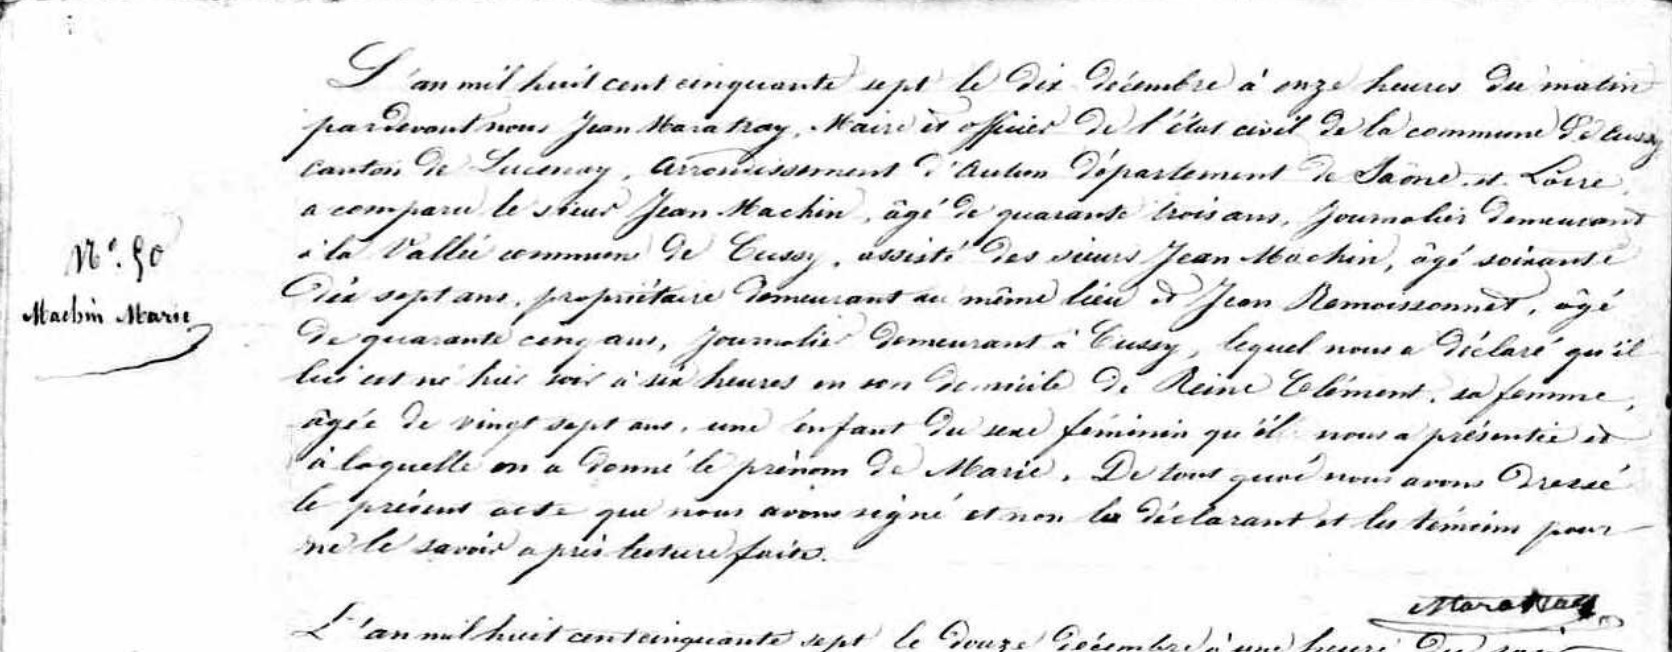 L'an mil huit cent cinquante sept le dix décembre à onze heures du matin
pardevant nous Jean Maratray, Maire et officier de l'état civil de la commune de Cussy
canton de Lucenay, arrondissement d'Autun département de Saône et Loire,
a comparu le sieur Jean Machin, âgé de quarante trois ans, Journalier demeurant
à la Vallée commune de Cussy, assisté des sieurs Jean Machin, âgé soixante
N°. 50
Machin Marie
dix sept ans, propriétaire demeurant au même lieu et Jean Remoissonnet, âgé
de quarante cinq ans, Journalier demeurant à Cussy, lequel nous a déclaré qu'il
lui est né hier soir à six heures en son domicile de Reine Clément, sa femme,
âgée de vingt sept ans, une enfant du sexe féminin qu'il nous a présentée et
à laquelle on a donné le prénom de Marie. De tout quoi nous avons dressé
le présent acte que nous avons signé et non le déclarant et les témoins pour
ne le savoir après lecture faite.
Maratray
L'an mil huit cent cinquante sept le douze décembre à une heure du soir